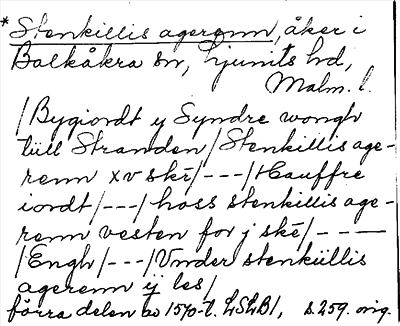 *Stenkillis agerenn, åker i
Balkåkra sn, Ljunits hd,
Malm. l.
/Bygiordt y Syndre wongh
till Stranden/Stenkillis age-
renn xv skē/---/Hauffre
iordt/---/hoss stenkillis age-
renn vesten for j skē/----
/Engh/---/Vnder stenkiillis
agerenn ij les/
förra delen av 1570-t. LSLB1, s. 259. orig.